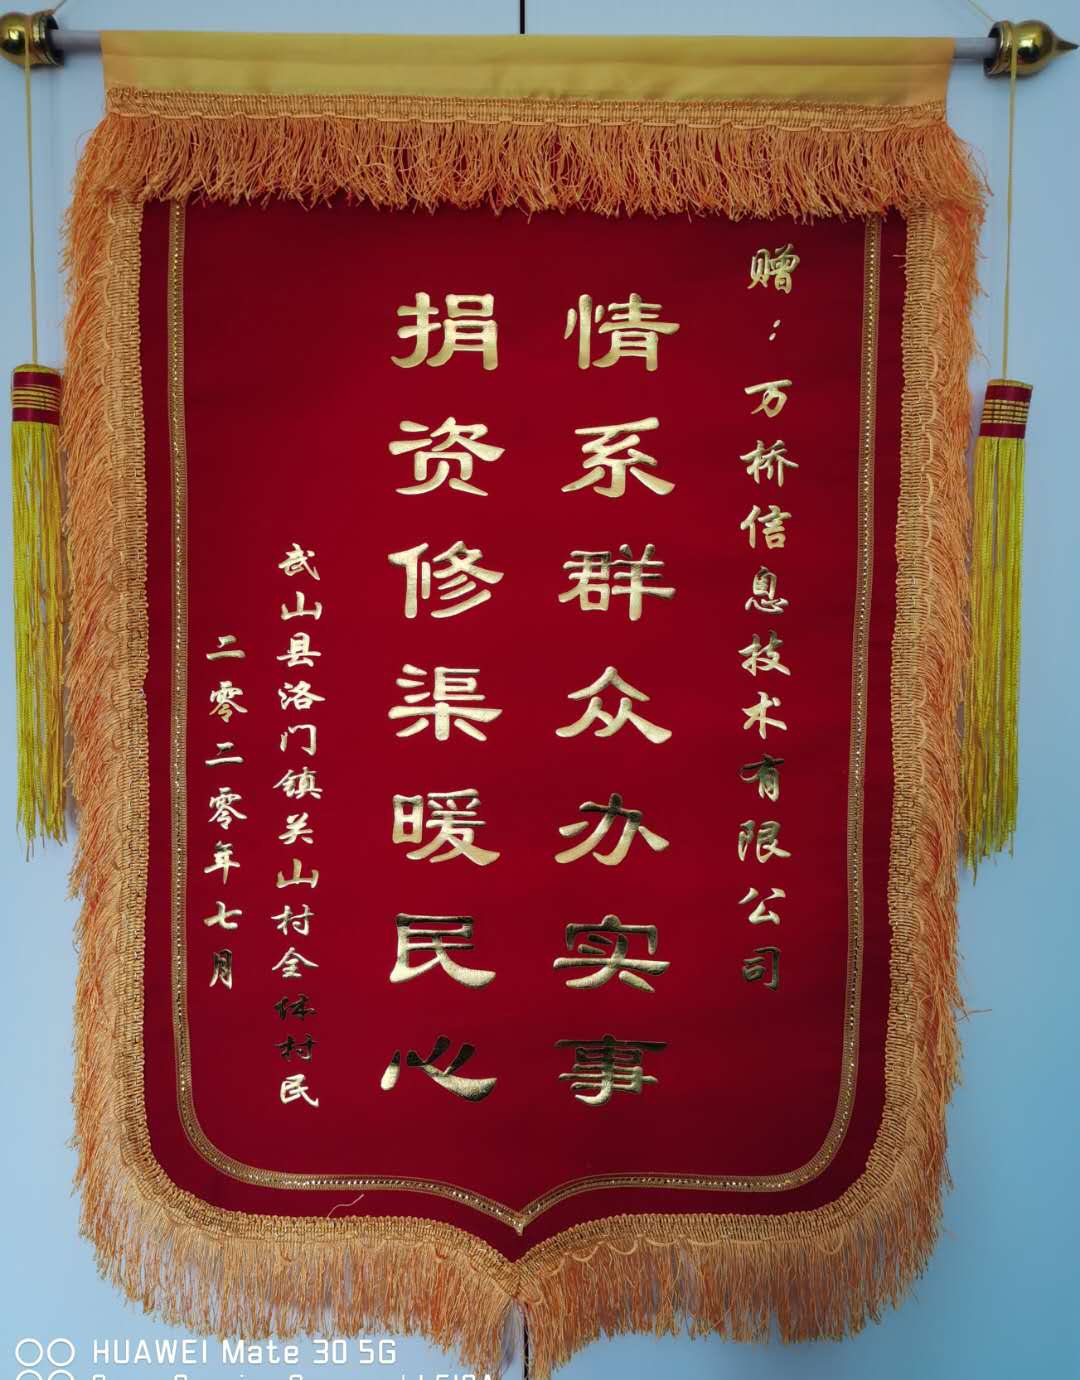 赠：万桥信息技术有限公司
情系群众办实事
捐资修渠暖民心
武山县洛门镇关山村全体村民
二零二零年七月
HUAWEI Mate 30 5G